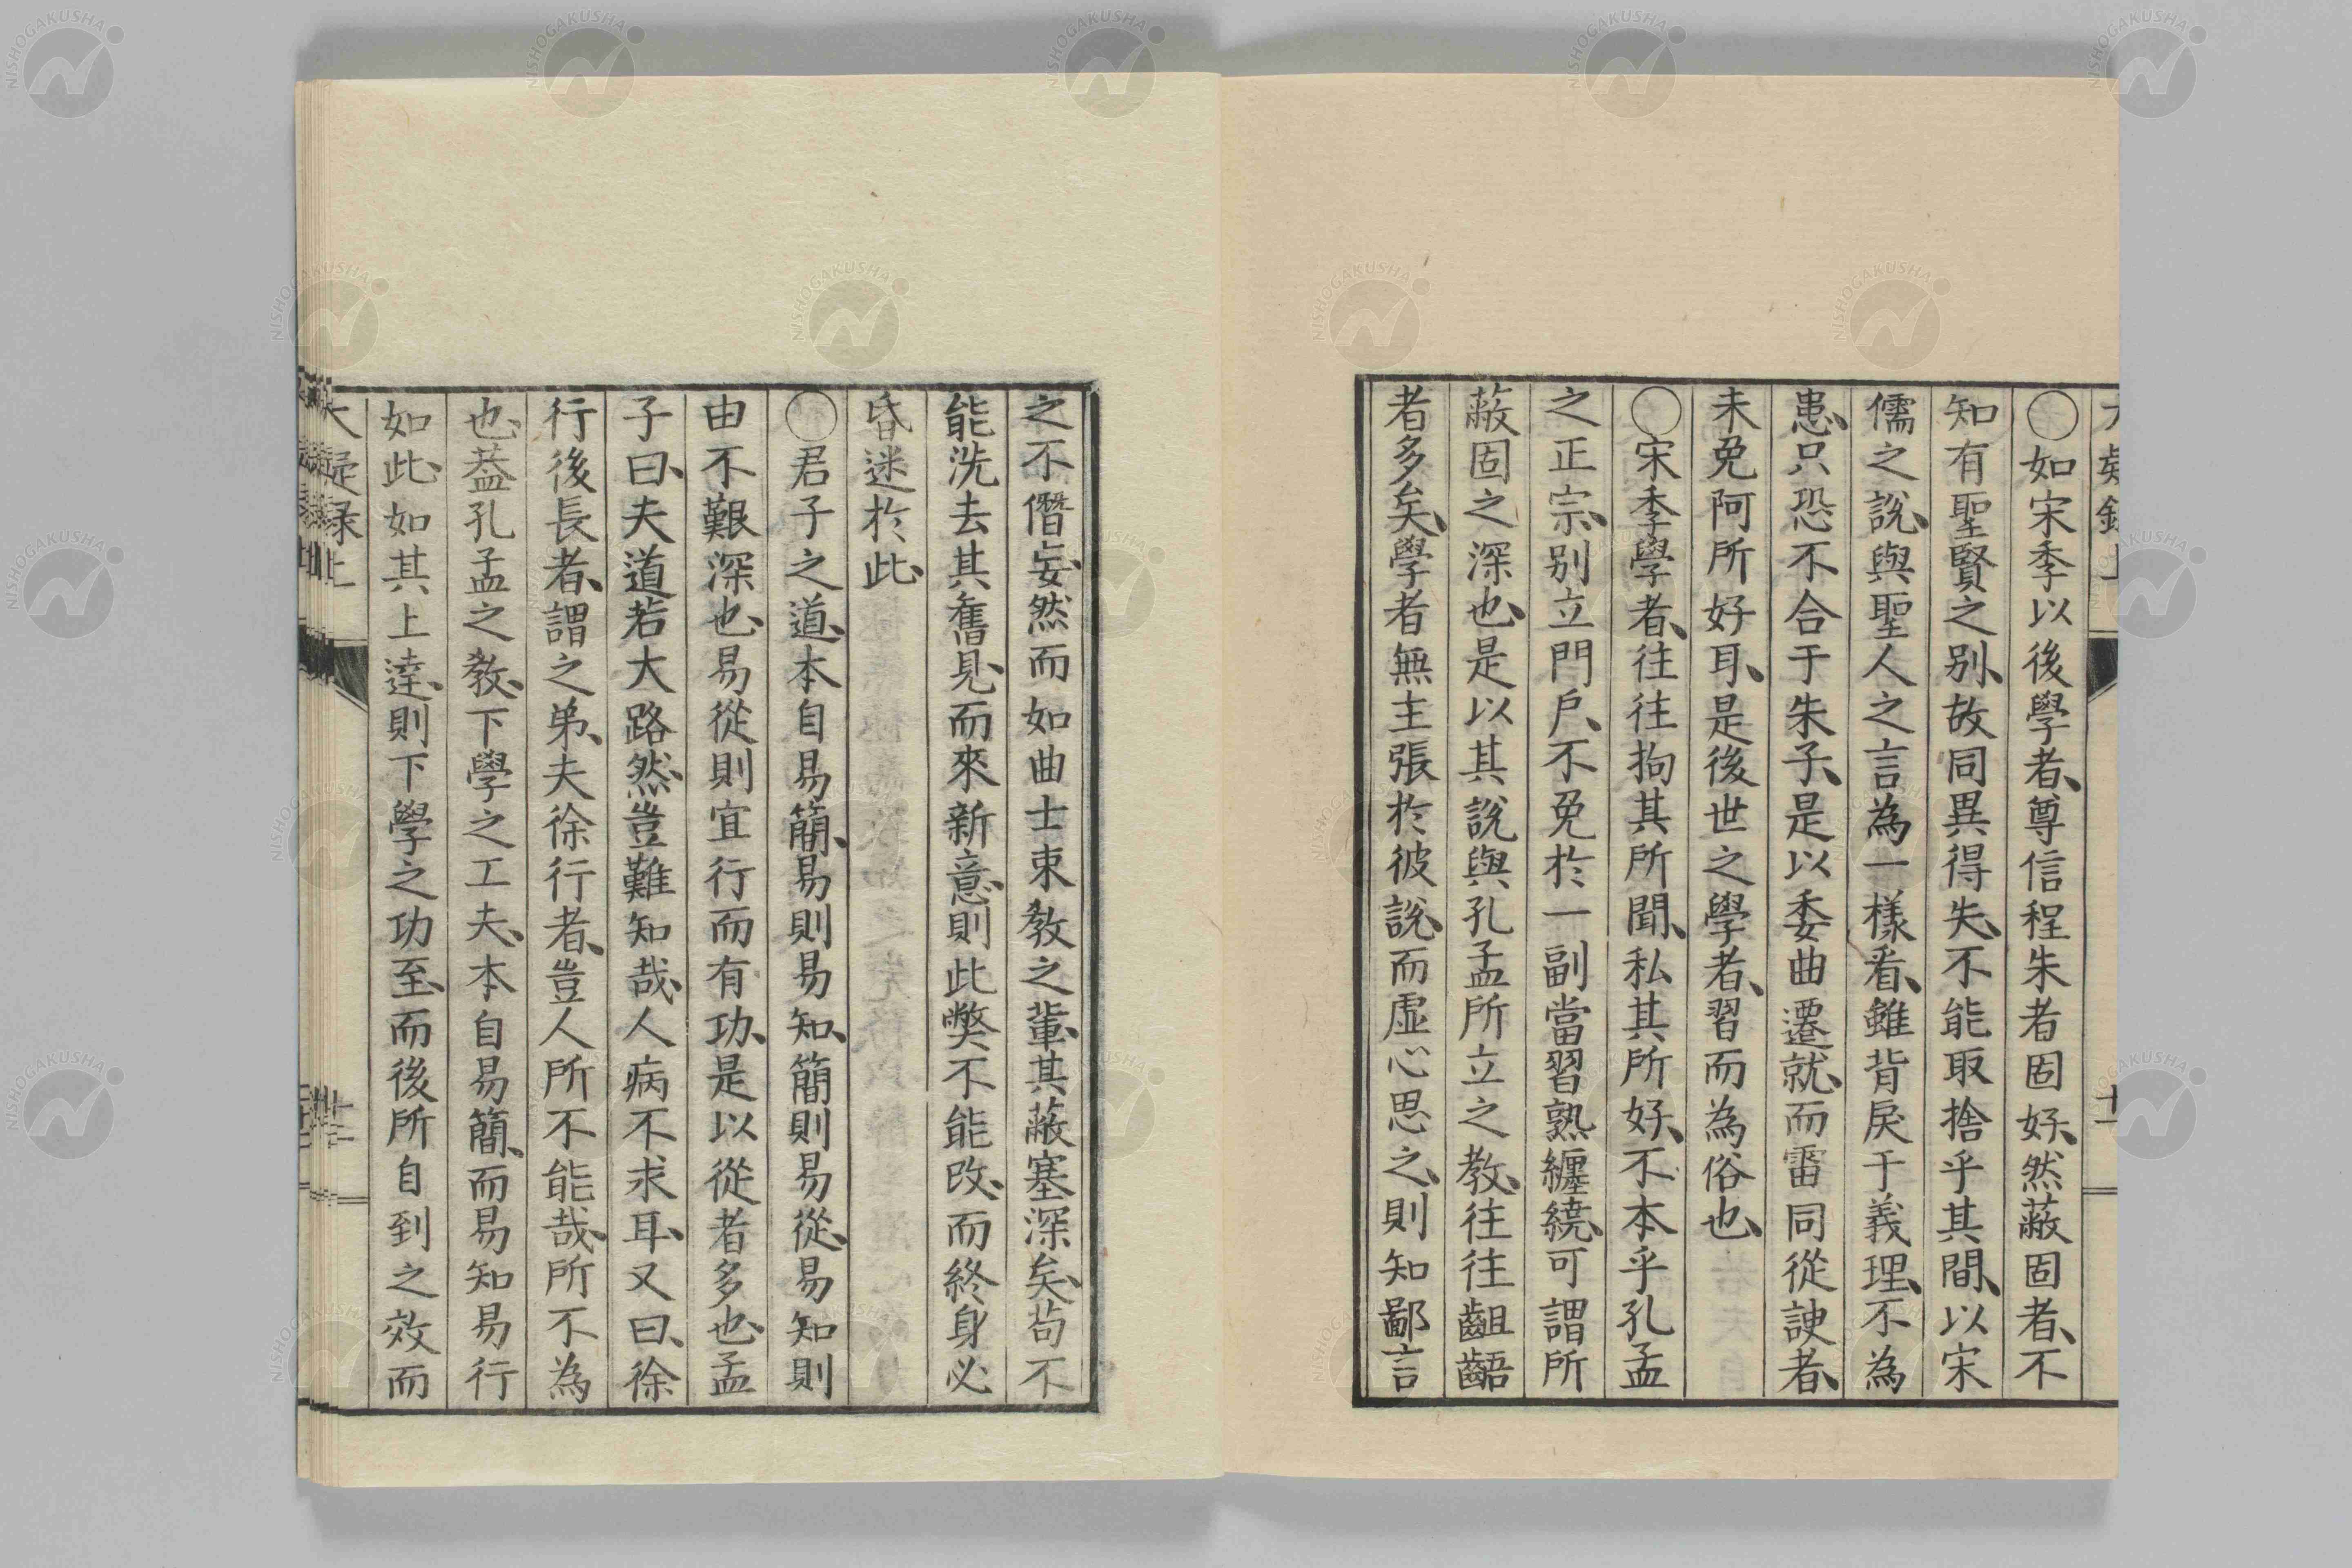 ○如宋季以後學者、尊信程朱者固好、然蔽固者、不
知有聖賢之別、故同異得失、不能取捨乎其間、以宋
儒之說、與聖人之言為一樣看、雖背戾于義理、不為
患、只恐不合于朱子、是以委曲遷就、而雷同從諛者、
未免阿所好耳、是後世之學者、習而為俗也、
○宋季學者、往往拘其所聞、私其所好、不本乎孔孟
之正宗、別立門戶、不免於一副當習熟纏繞、可謂所
蔽固之深也、是以其說與孔孟所立之教、往往齟齬
者多矣、學者無主張於彼說、而虛心思之、則知鄙言
之不僭妄、然而如曲士束教之輩、其蔽塞深矣、苟不
能洗去其舊見、而來新意、則此弊不能改、而終身必
昏迷於此、
○君子之道、本自易簡、易則易知、簡則易從、易知則
由不艱深也、易從則宜行而有功、是以從者多也、孟
子曰、夫道若大路然、豈難知哉、人病不求耳、又曰、徐
行後長者、謂之弟、夫徐行者、豈人所不能哉、所不為
也、蓋孔孟之教、下學之工夫、本自易簡、而易知易行
如此、如其上達、則下學之功至、而後所自到之效而
大疑録上
十二
NISHOGAKUSHA